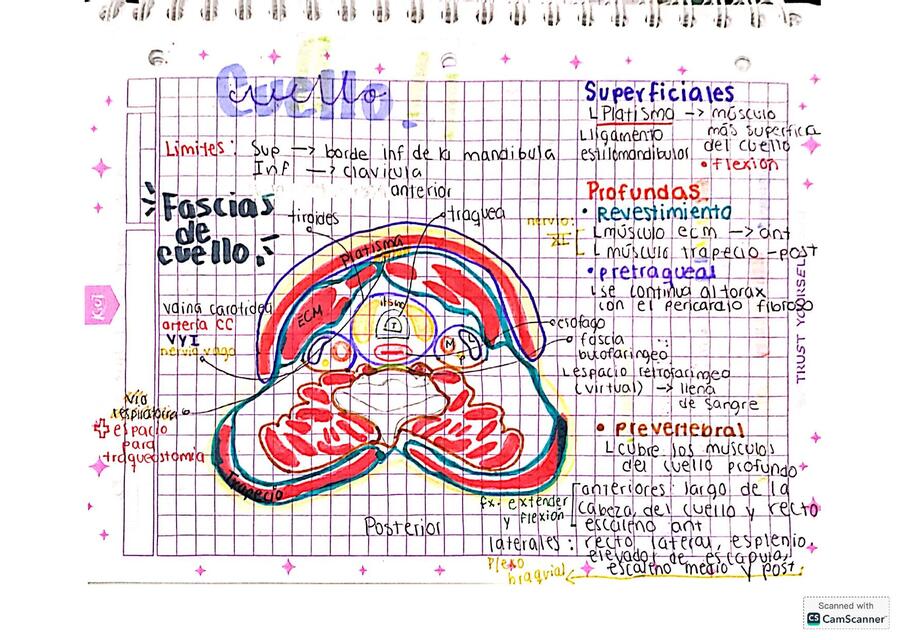 Cuello.
Límites: Sup → borde inf de la mandibula
Inf → clavícula
anterior
Fascias
de
cuello.
tiroides
traquea
platisma
ECM
T
M
L
vaina carotidea
arteria CC
VYI
nervio vago
Vía
respiratoria
+ espacio
para
traqueostomía
esófago
fascia
bucofaringeo
Trapecio
Posterior
Superficiales
Platisma → músculo
más superficia
del cuello
Ligamento
estilomandibular
• flexión
Profundas
• Revestimiento
nervio:
XI
músculo ecm → ant
músculo trapecio - post
• pretraqueal
se continua al torax
con el pericardio fibroso
espacio retrofaringeo
(virtual) → llena
de sangre
• prevertebral
cubre los músculos
del cuello profundo
anteriores: largo de la
cabeza, del cuello y recto
escaleno ant
fx. extender
y flexión
laterales: recto lateral, esplenio,
elevador de escápula,
escaleno medio y post.
Plexo
braquial
TRUST YOURSEL
Koj
Scanned with
CS CamScanner